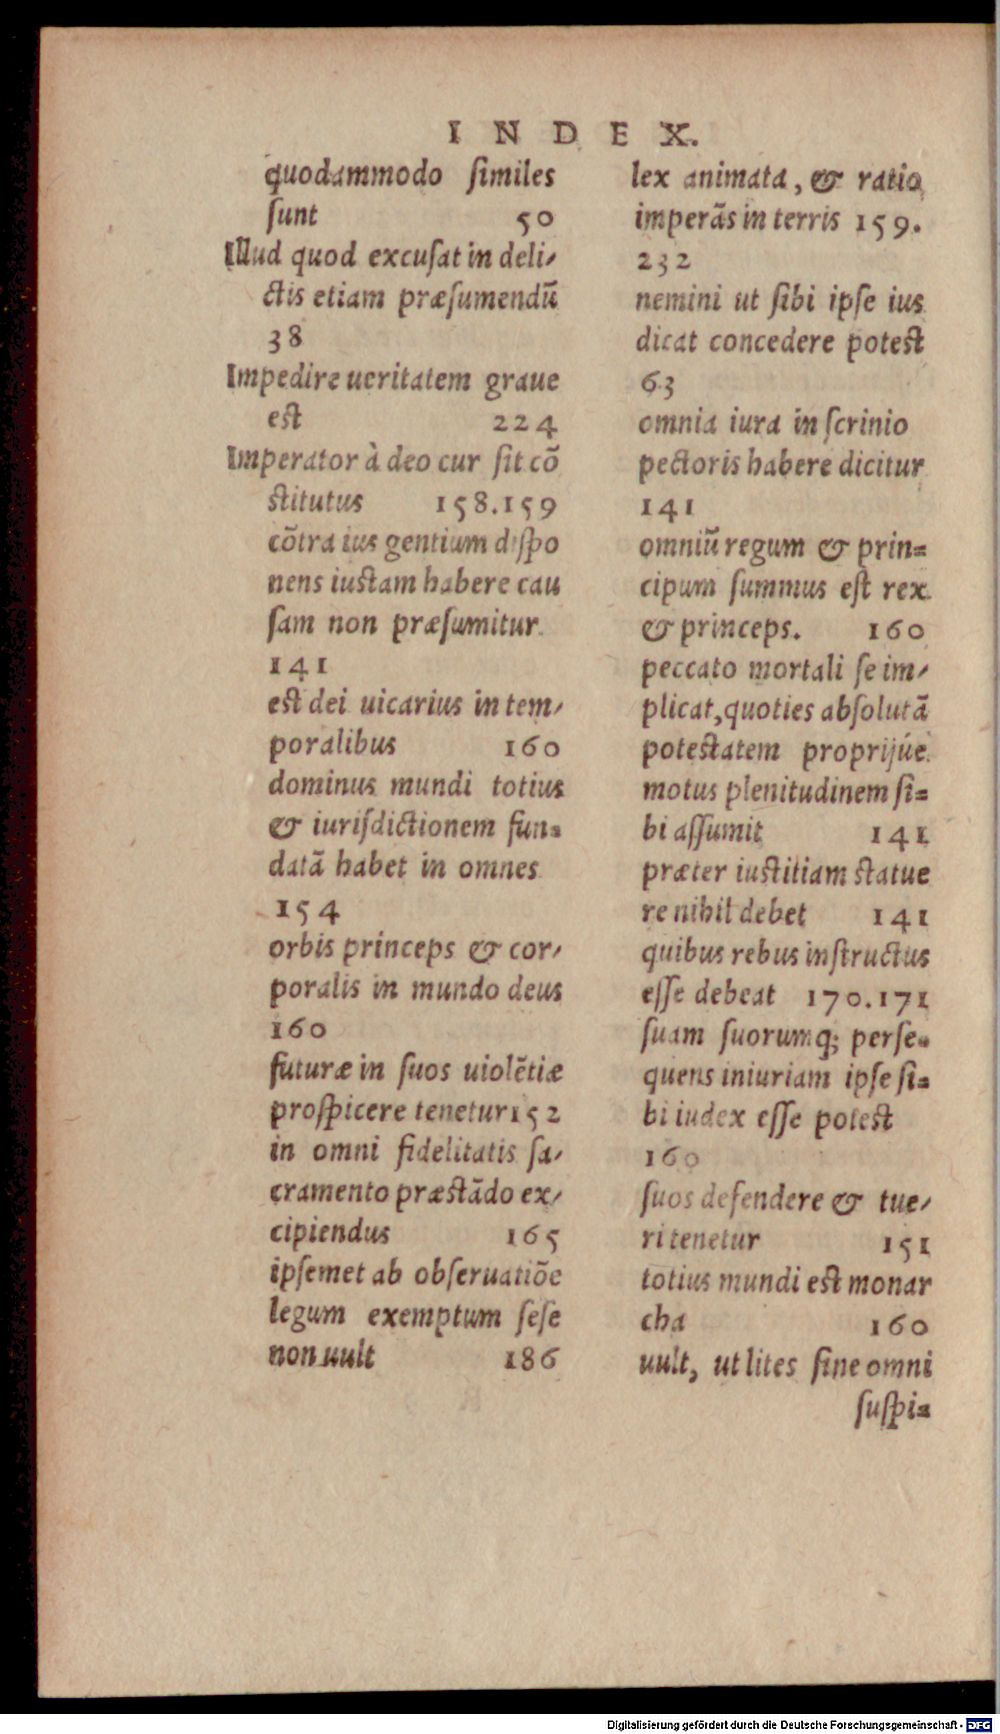 INDEX.
quodammodo ſimiles
ſunt 50
Illud quod excuſat in deli⸗
ctis etiam præſumendū
38
Impedire ueritatem graue
est 224
Imperator à deo cur ſit cō
stitutus 158.159
cōtra ius gentium diſpo
nens iustam habere cau
ſam non præſumitur
141
est dei uicarius in tem⸗
poralibus 160
dominus mundi totius
& iuriſdictionem fun⸗
datā habet in omnes
154
orbis princeps & cor⸗
poralis in mundo deus
160
futuræ in ſuos uiolētiæ
proſpicere tenetur 152
in omni fidelitatis ſa⸗
cramento præstādo ex⸗
cipiendus 165
ipſemet ab obſeruatiōe
legum exemptum ſeſe
non uult 186
lex animata, & ratio
imperās in terris 159.
232
nemini ut ſibi ipſe ius
dicat concedere potest
63
omnia iura in ſcrinio
pectoris habere dicitur
141
omniū regum & prin⸗
cipum ſummus eſt rex
& princeps. 160
peccato mortali ſe im⸗
plicat, quoties abſolutā
potestatem proprijúe
motus plenitudinem ſi⸗
bi aſſumit 141
præter iustitiam statue
re nihil debet 141
quibus rebus inſtructus
eſſe debeat 170.171
ſuam ſuorumq; perſe⸗
quens iniuriam ipſe ſi⸗
bi iudex eſſe potest
160
ſuos defendere & tue⸗
ri tenetur 151
totius mundi est monar
cha 160
uult, ut lites ſine omni
ſuſpi⸗
Digitalisierung gefördert durch die Deutsche Forschungsgemeinschaft - DFG